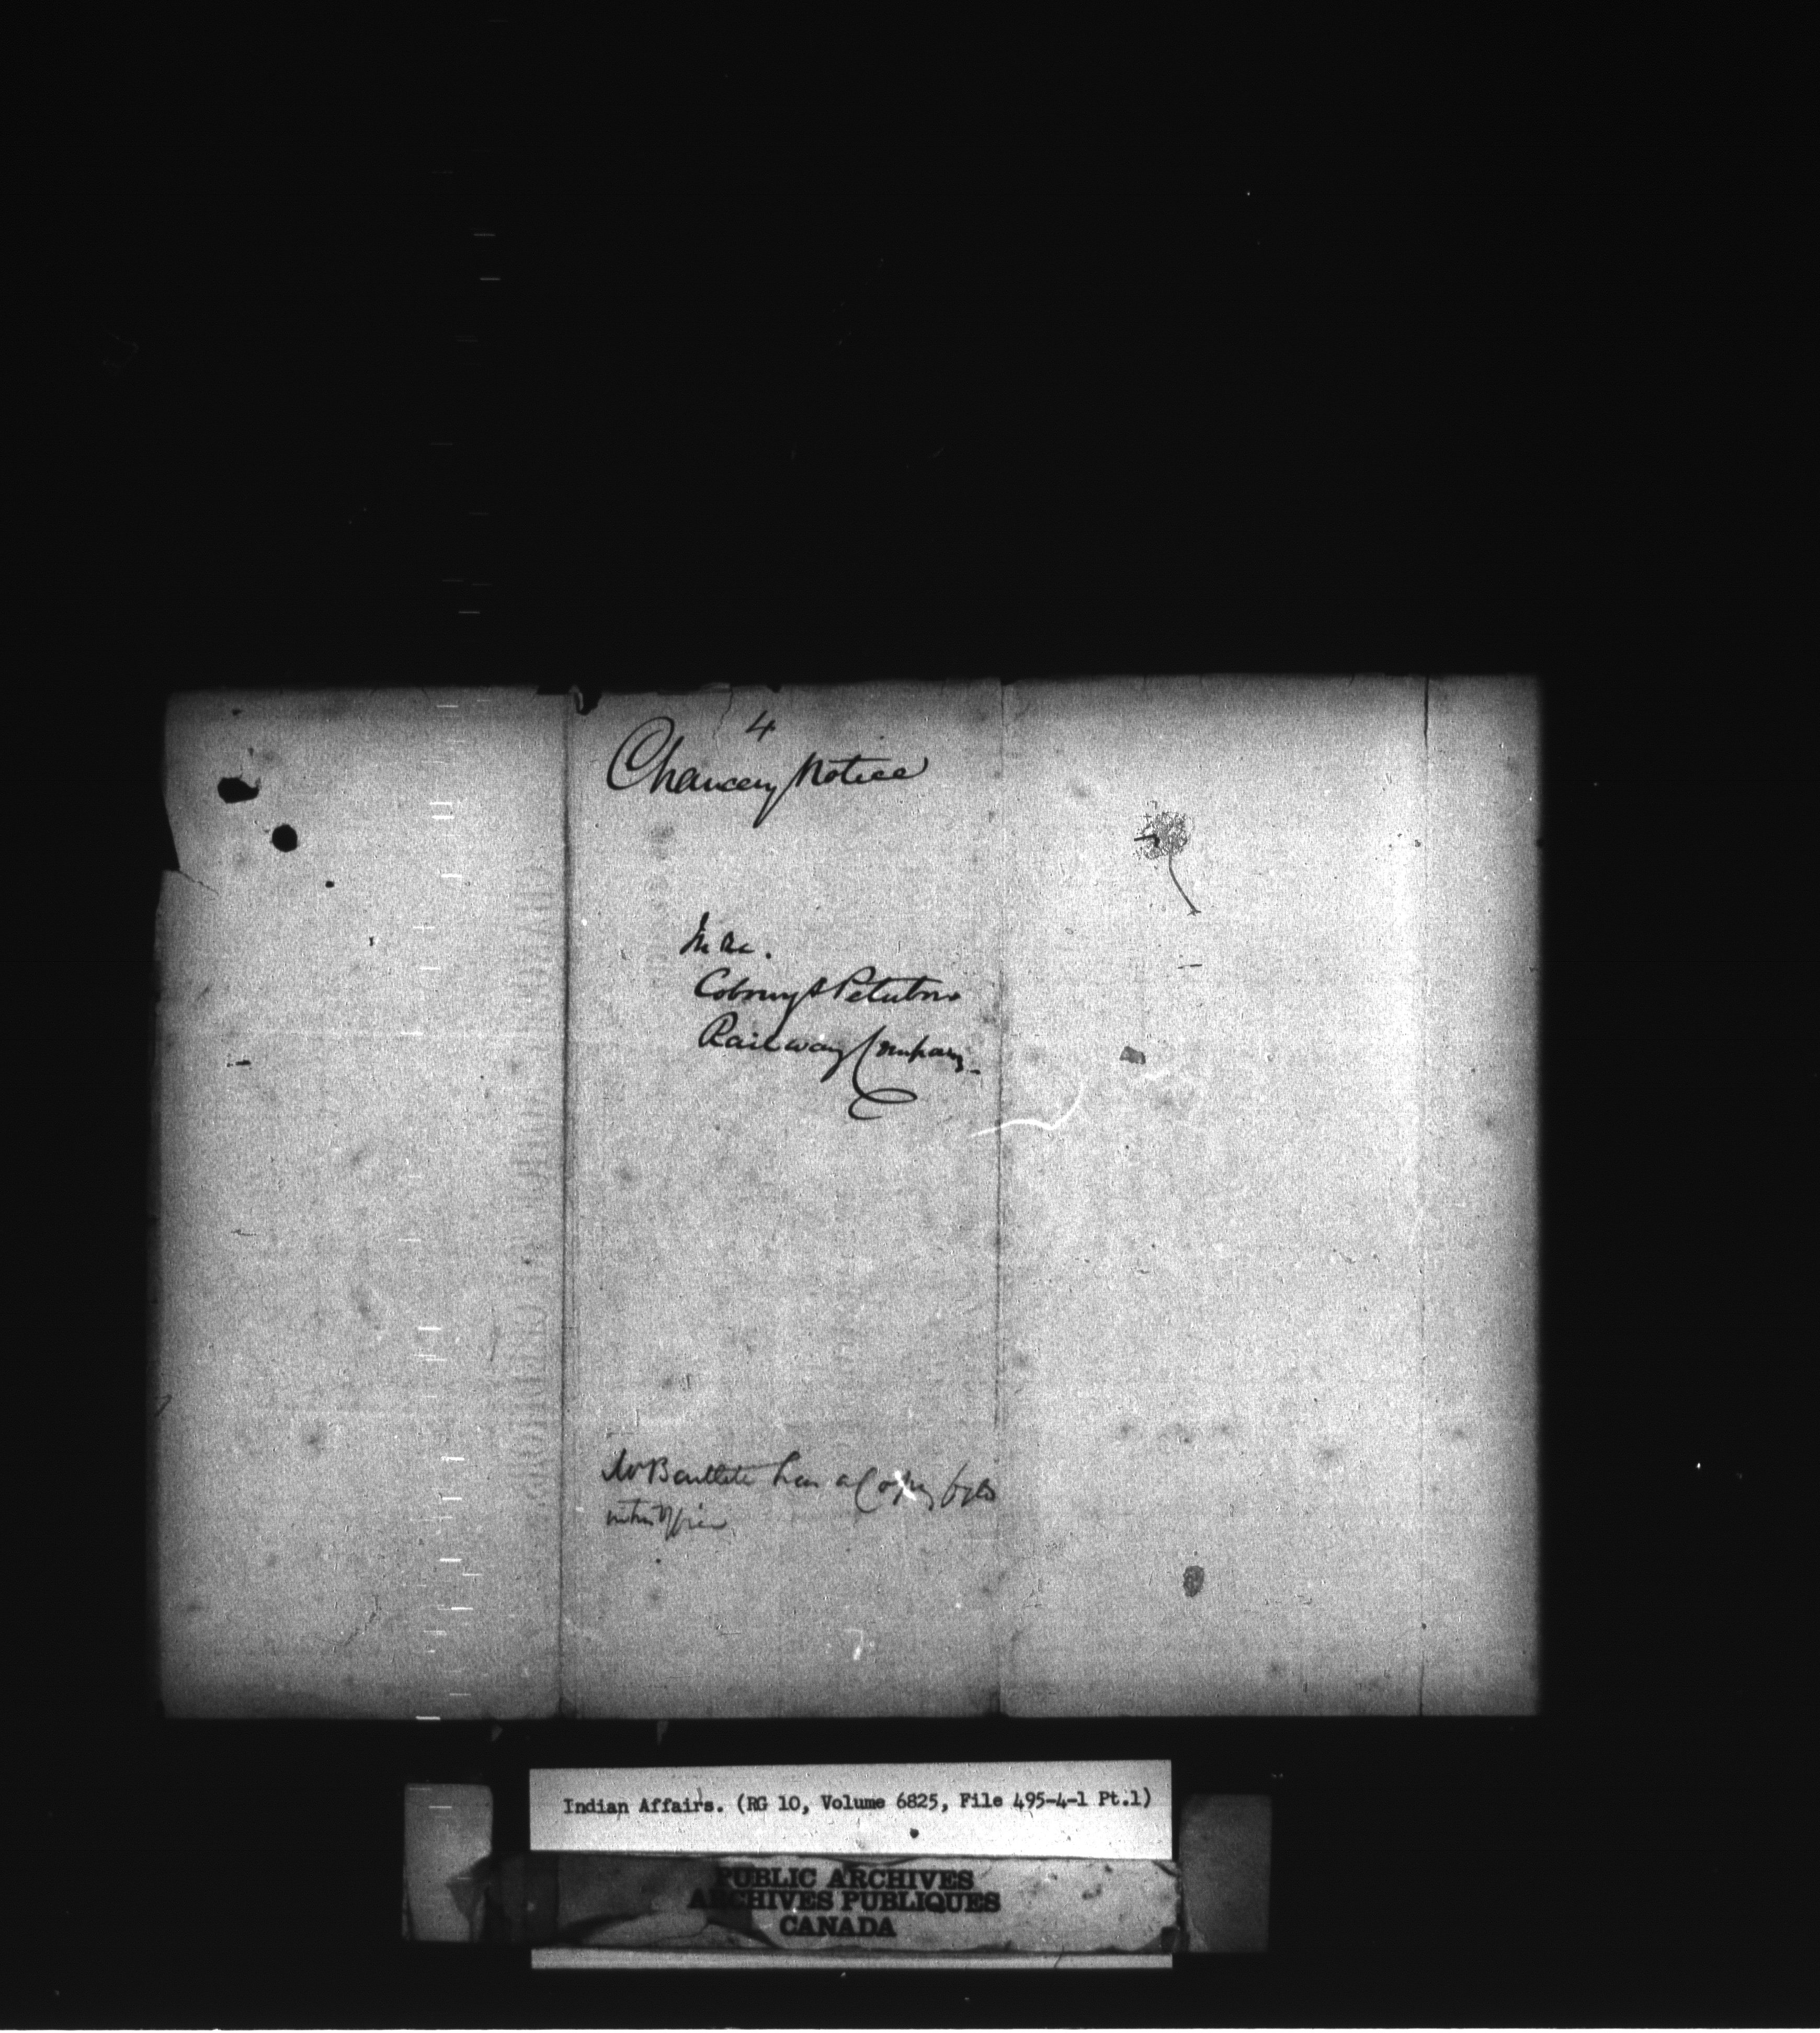 4
Chancery Notice
In Re.
Cobourg & Peterboro
Railway Company.
Mr Bartlett has a Copy of
Indian Affairs. (RG 10, Volume 6825, File 495-4-1 Pt.1)
PUBLIC ARCHIVES
ARCHIVES PUBLIQUES
CANADA